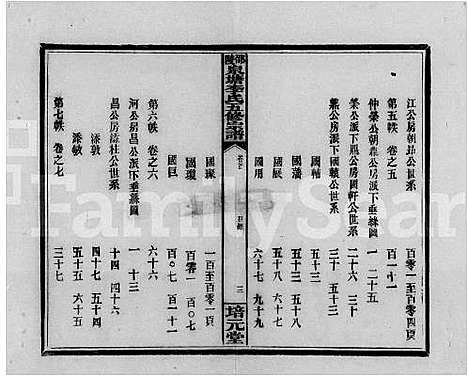 江公房朝祜公世系 百零一至百零四頁
第五帙 卷之五 百一十一
仲榮公朝鼎公房派下垂絲圖 一 二十五
鼎公派下鳳公房國軒公世系 二十六 三十
鼎公房派下國贊公世系 三十 五十三
國輔 五十三
國藩 五十三 五十八
國展 五十八 六十七
國用 六十七 九十九
邵陵 泉塘李氏五修宗譜
卷之 目錄 三
培元堂
國璨 一百至百零一頁
國瓊 百零一 百〇七
國巨 百〇七 百一十一
第六帙 卷之六 六十六
河公房昌公派下垂絲圖 一 十三
昌公房添祉公世系 十四 四十六
添敦 四十七 五十四
添敏 五十五 六十五
第七帙 卷之七 三十七
FamilySear